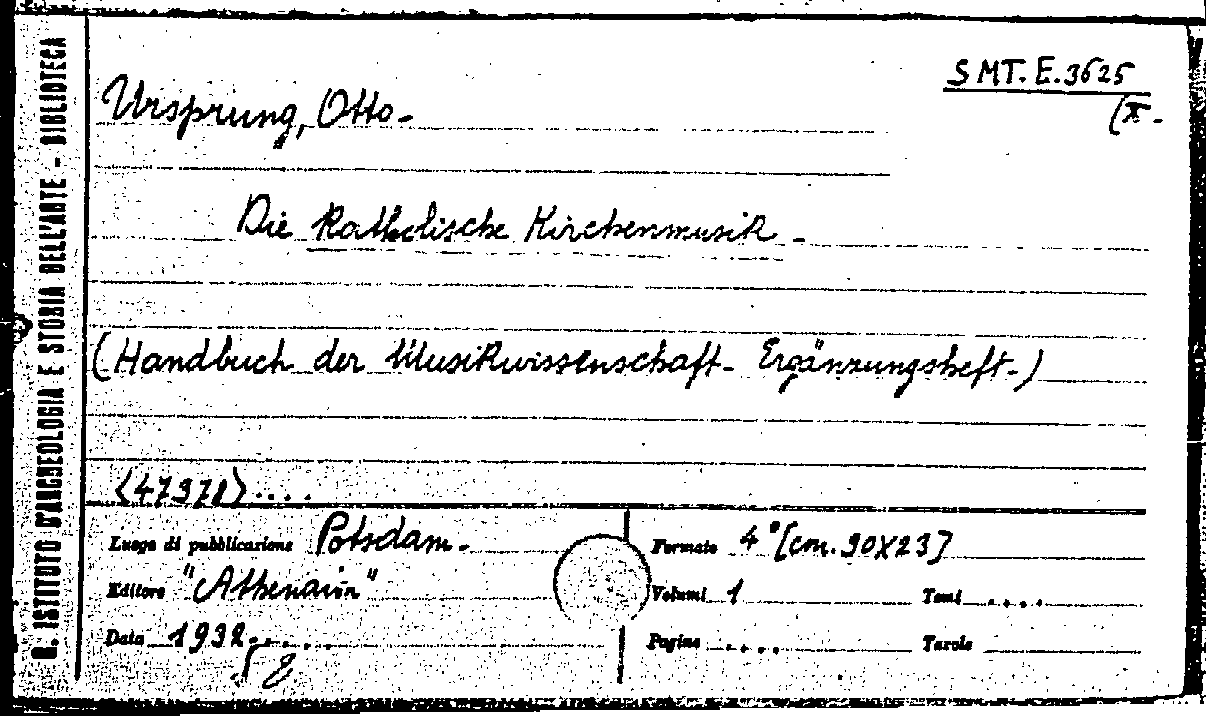 R. ISTITUTO D'ARCHEOLOGIA E STORIA DELL'ARTE - BIBLIOTECA
SMT. E. 3625
Ursprung, Otto -
Die Katholische Kirchenmusik -
(Handbuch der Musikwissenschaft - Ergänzungsheft -)
Luogo di pubblicazione Potsdam -
Formato 4° [cm. 30X23]
Editore "Athenaion"
Volumi 1 Tomi ....
Data 1932
Pagine .... Tavole